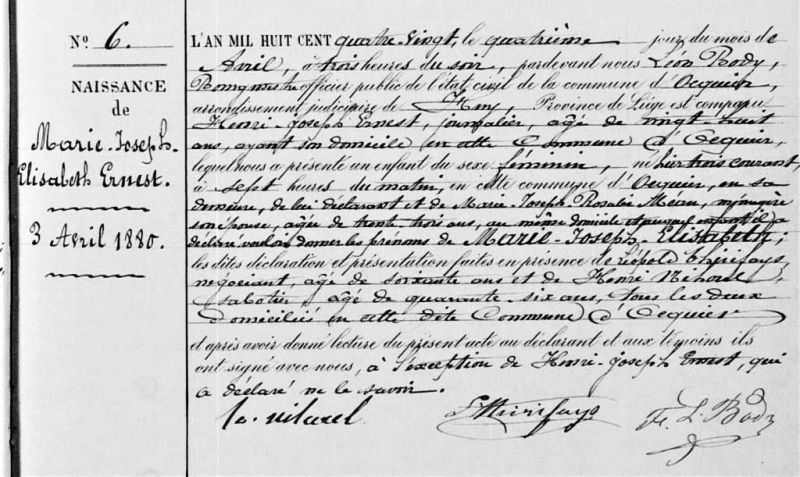 N° 6.
NAISSANCE
de
Marie-Joseph-
Elisabeth Ernest.
3 Avril 1880.
L'AN MIL HUIT CENT quatre-vingt, le quatrième jour du mois de
Avril, à trois heures du soir, pardevant nous Léon Body,
Bourgmestre officier public de l'état civil de la commune d'Ocquier,
arrondissement judiciaire de Huy, Province de Liège est comparu
Henri-Joseph Ernest, journalier, âgé de vingt-huit
ans, ayant son domicile en cette Commune d'Ocquier,
lequel nous a présenté un enfant du sexe féminin, né hier trois courant,
à sept heures du matin, en cette commune d'Ocquier, en sa
demeure, de lui déclarant et de Marie-Joseph Rosalie Méan, ménagère
son épouse, âgée de trente trois ans, au même domicile et auquel enfant il a
déclaré vouloir donner les prénoms de Marie-Joseph-Elisabeth;
les dites déclaration et présentation faites en présence de Léopold Thirifays
négociant, âgé de soixante ans et de Henri
sabotier, âgé de quarante-six ans, tous les deux
domiciliés en cette dite Commune d'Ocquier
et après avoir donné lecture du présent acte au déclarant et aux témoins ils
ont signé avec nous, à l'exception de Henri-Joseph Ernest, qui
a déclaré ne le savoir.
L. Thirifays
L. Body